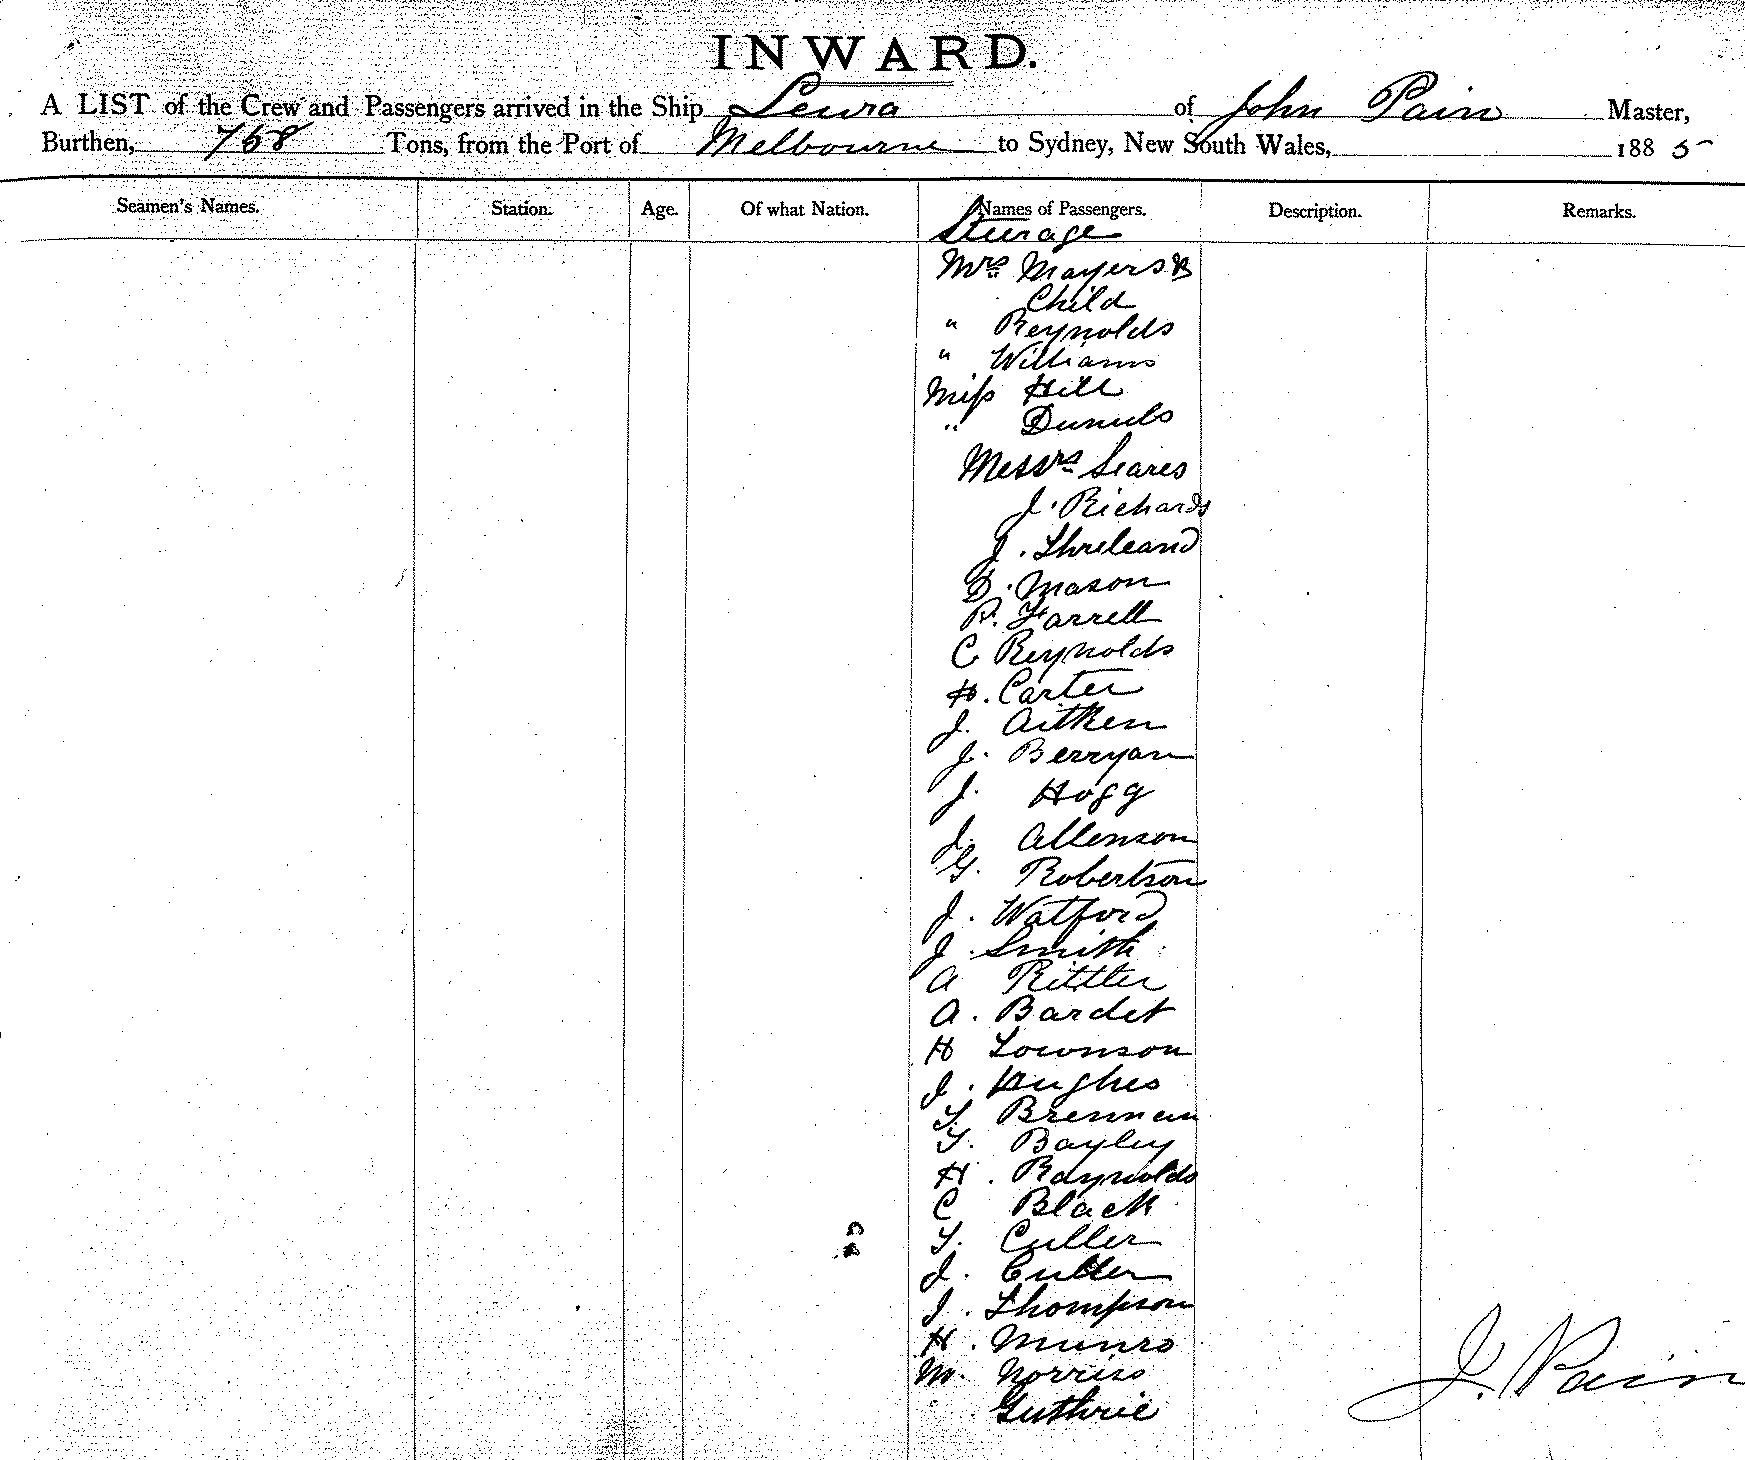 INWARD.
A LIST of the Crew and Passengers arrived in the Ship Leura of John Pain Master,
Burthen, 758 Tons, from the Port of Melbourne to Sydney, New South Wales, 1885
Seamen's Names. Station. Age. Of what Nation. Names of Passengers. Description. Remarks.
Steerage
Mrs Mayers &
Child
" Reynolds
" Williams
Miss Hill
"
Messrs Seares
J. Richards
J.
D. Mason
R. Farrell
C Reynolds
H. Carter
J. Aitken
J. Berryan
J. Hogg
J. Allenson
G. Robertson
J. Watford
J. Smith
A Rittler
A. Bardet
H Townson
J. Hughes
T. Brennan
T. Bayley
H. Raynolds
C Black
T. Culler
J. Culler
J. Thompson
H. Munro
M. Norriss
Guthrie
J. Pain